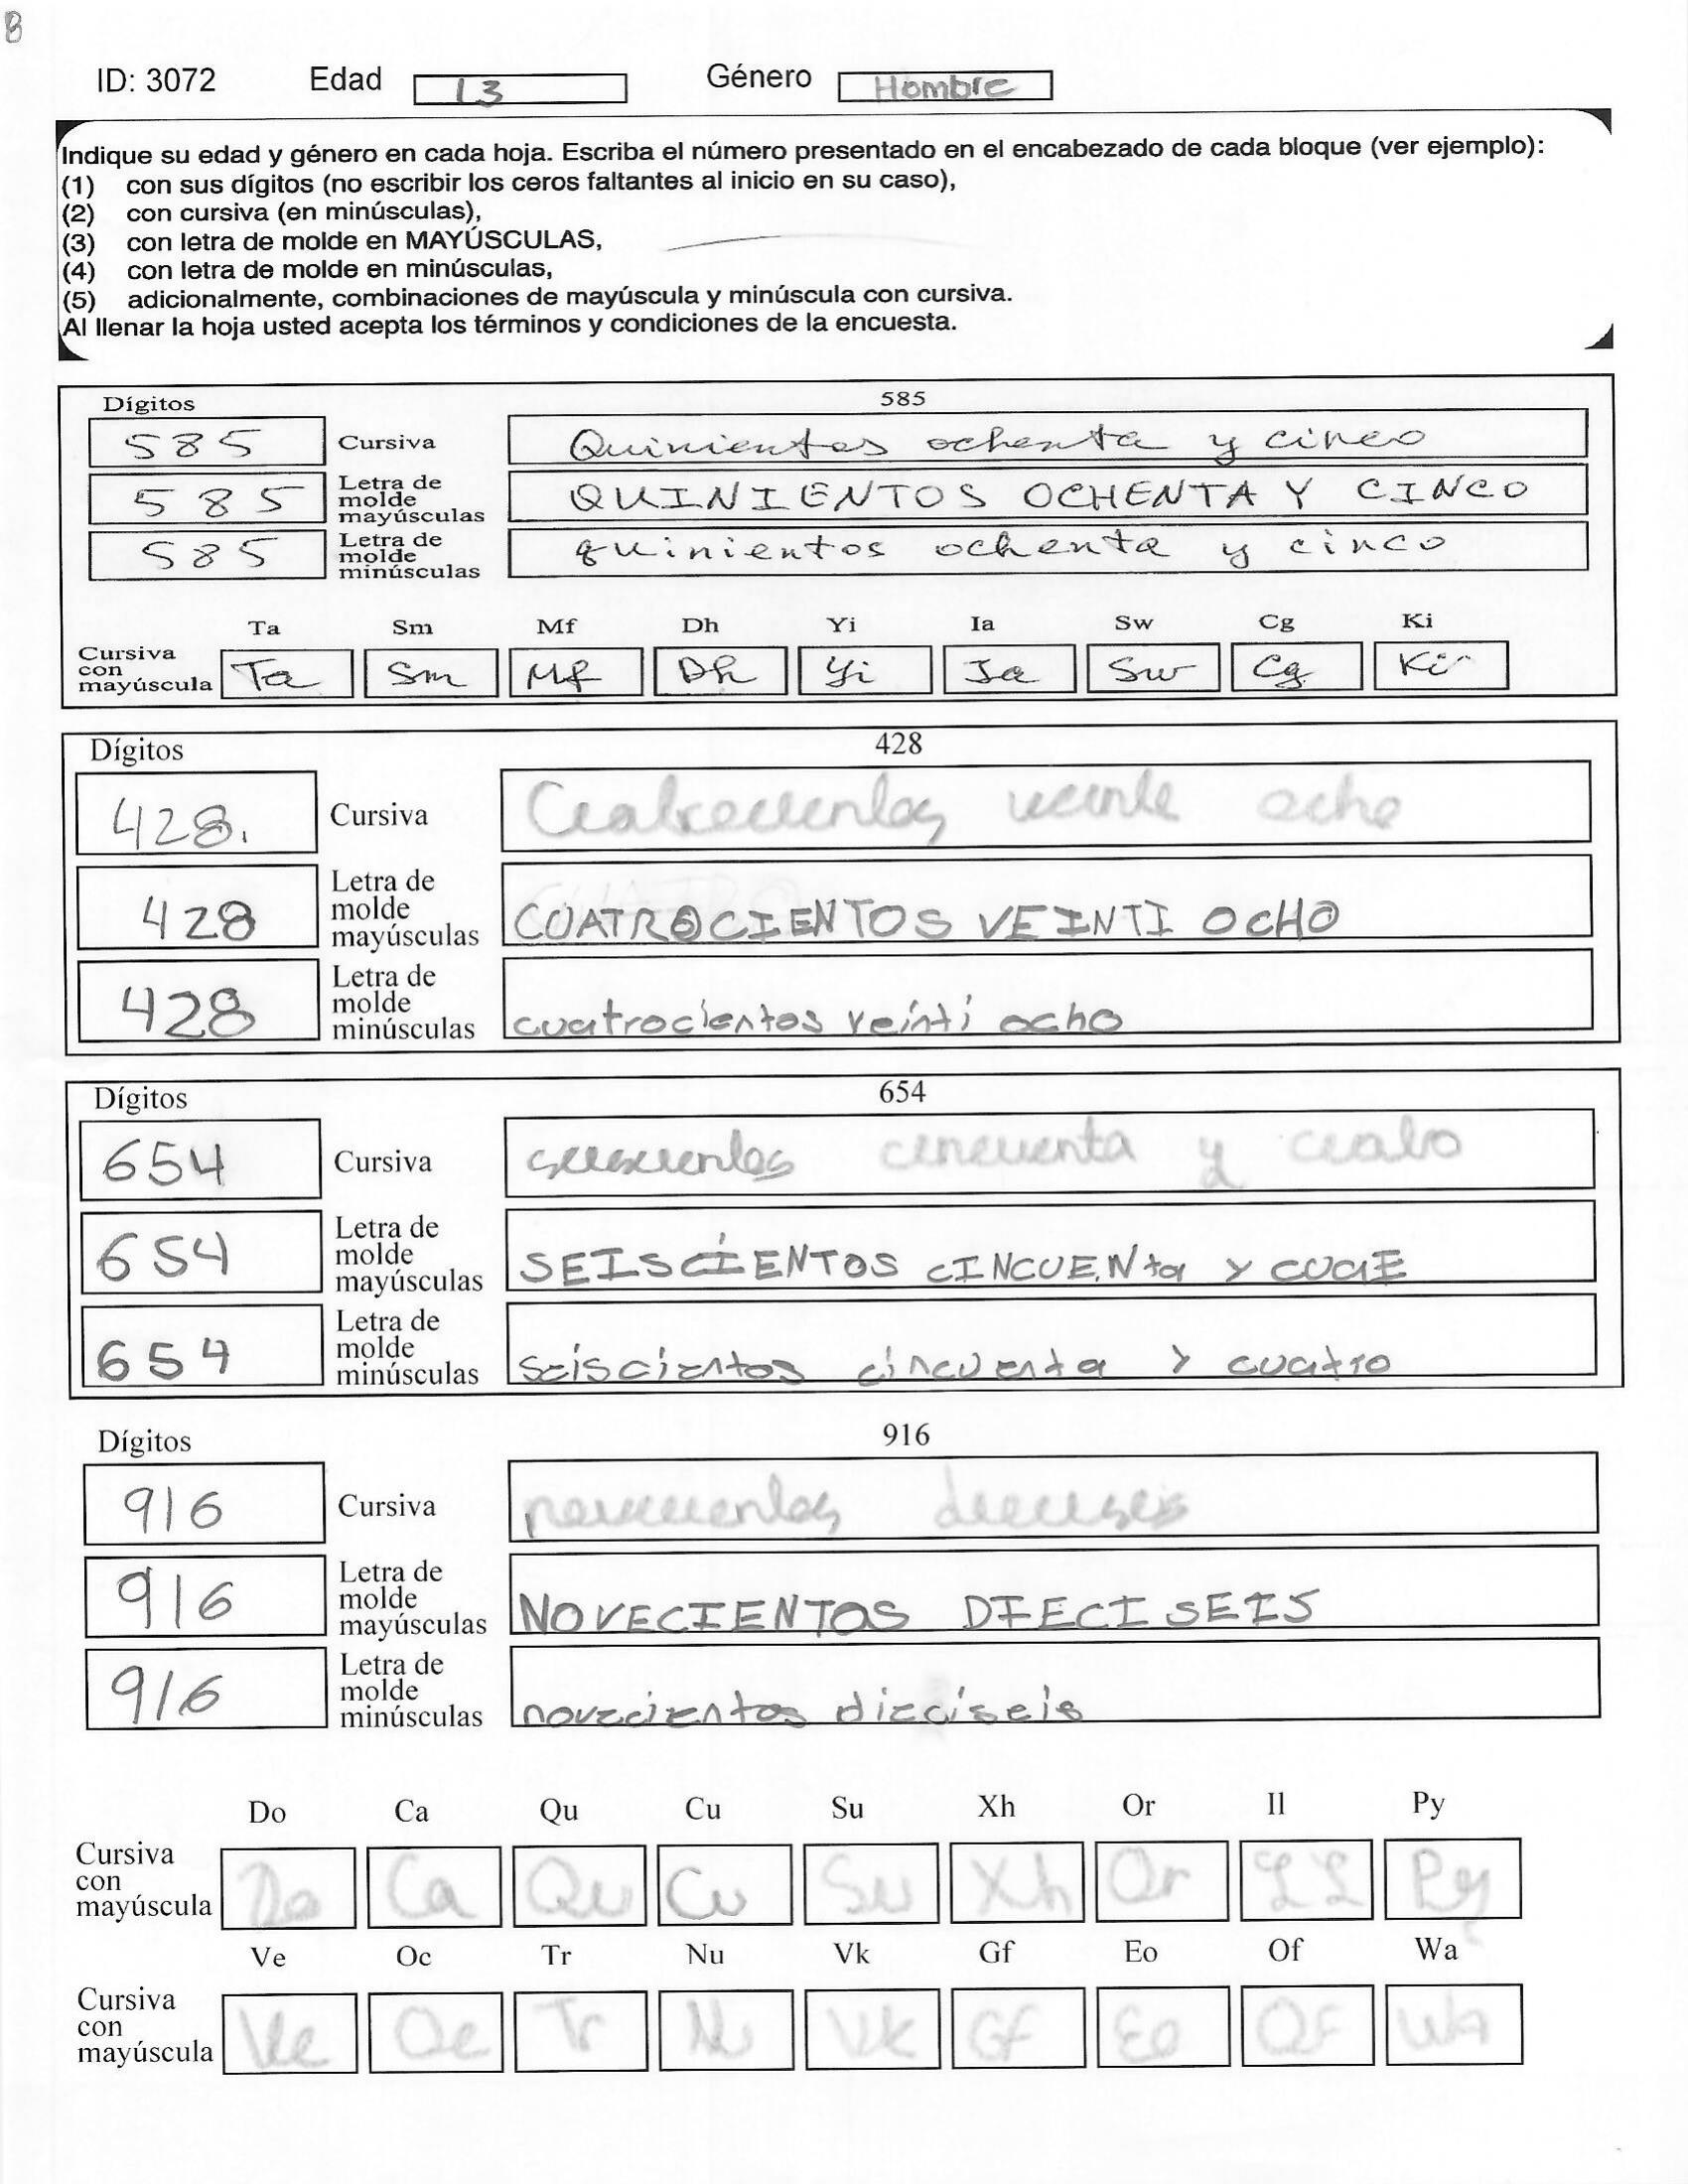 8
ID: 3072 Edad 13 Género Hombre
Indique su edad y género en cada hoja. Escriba el número presentado en el encabezado de cada bloque (ver ejemplo):
(1) con sus dígitos (no escribir los ceros faltantes al inicio en su caso),
(2) con cursiva (en minúsculas),
(3) con letra de molde en MAYÚSCULAS,
(4) con letra de molde en minúsculas,
(5) adicionalmente, combinaciones de mayúscula y minúscula con cursiva.
Al llenar la hoja usted acepta los términos y condiciones de la encuesta.
Dígitos 585
585 Cursiva Quinientos ochenta y cinco
585 Letra de molde mayúsculas QUINIENTOS OCHENTA Y CINCO
585 Letra de molde minúsculas quinientos ochenta y cinco
Ta Sm Mf Dh Yi Ia Sw Cg Ki
Cursiva con mayúscula Ta Sm Mf Dh Yi Ia Sw Cg Ki
Dígitos 428
428. Cursiva ocho
428 Letra de molde mayúsculas CUATROCIENTOS VEINTI OCHO
428 Letra de molde minúsculas cuatrocientos veinti ocho
Dígitos 654
654 Cursiva cincuenta y
654 Letra de molde mayúsculas SEISCIENTOS CINCUENta Y
654 Letra de molde minúsculas seiscientos cincuenta y cuatro
Dígitos 916
916 Cursiva
916 Letra de molde mayúsculas NOVECIENTOS DIECISEIS
916 Letra de molde minúsculas novecientos dieciseis
Do Ca Qu Cu Su Xh Or Il Py
Cursiva con mayúscula Do Ca Qu Cu Su Xh Or Py
Ve Oc Tr Nu Vk Gf Eo Of Wa
Cursiva con mayúscula Ve Oc Tr Nu Vk Gf Eo Of Wa